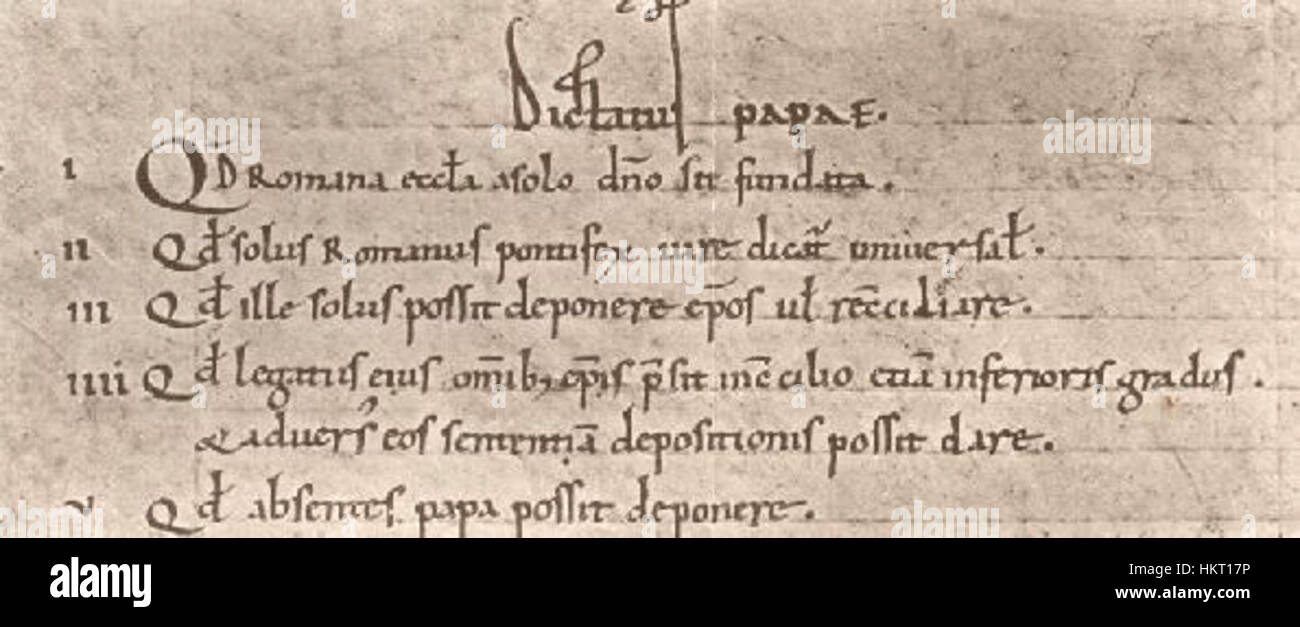 Dictatus papae.
I QD Romana eccła a solo dn̄o sit fundata.
II Qđ solus Romanus pontifex iure dicat᷑ universał.
III Qđ ille solus possit deponere ep̄os uł recc̄iliare.
IIII Qđ legatus eius om̄ib; ep̄is p̄sit in c̄cilio etiā inferioris gradus.
& adversꝰ eos sententiā depositionis possit dare.
V Qđ absentes papa possit deponere.
alamy
Image ID: HKT17P
www.alamy.com